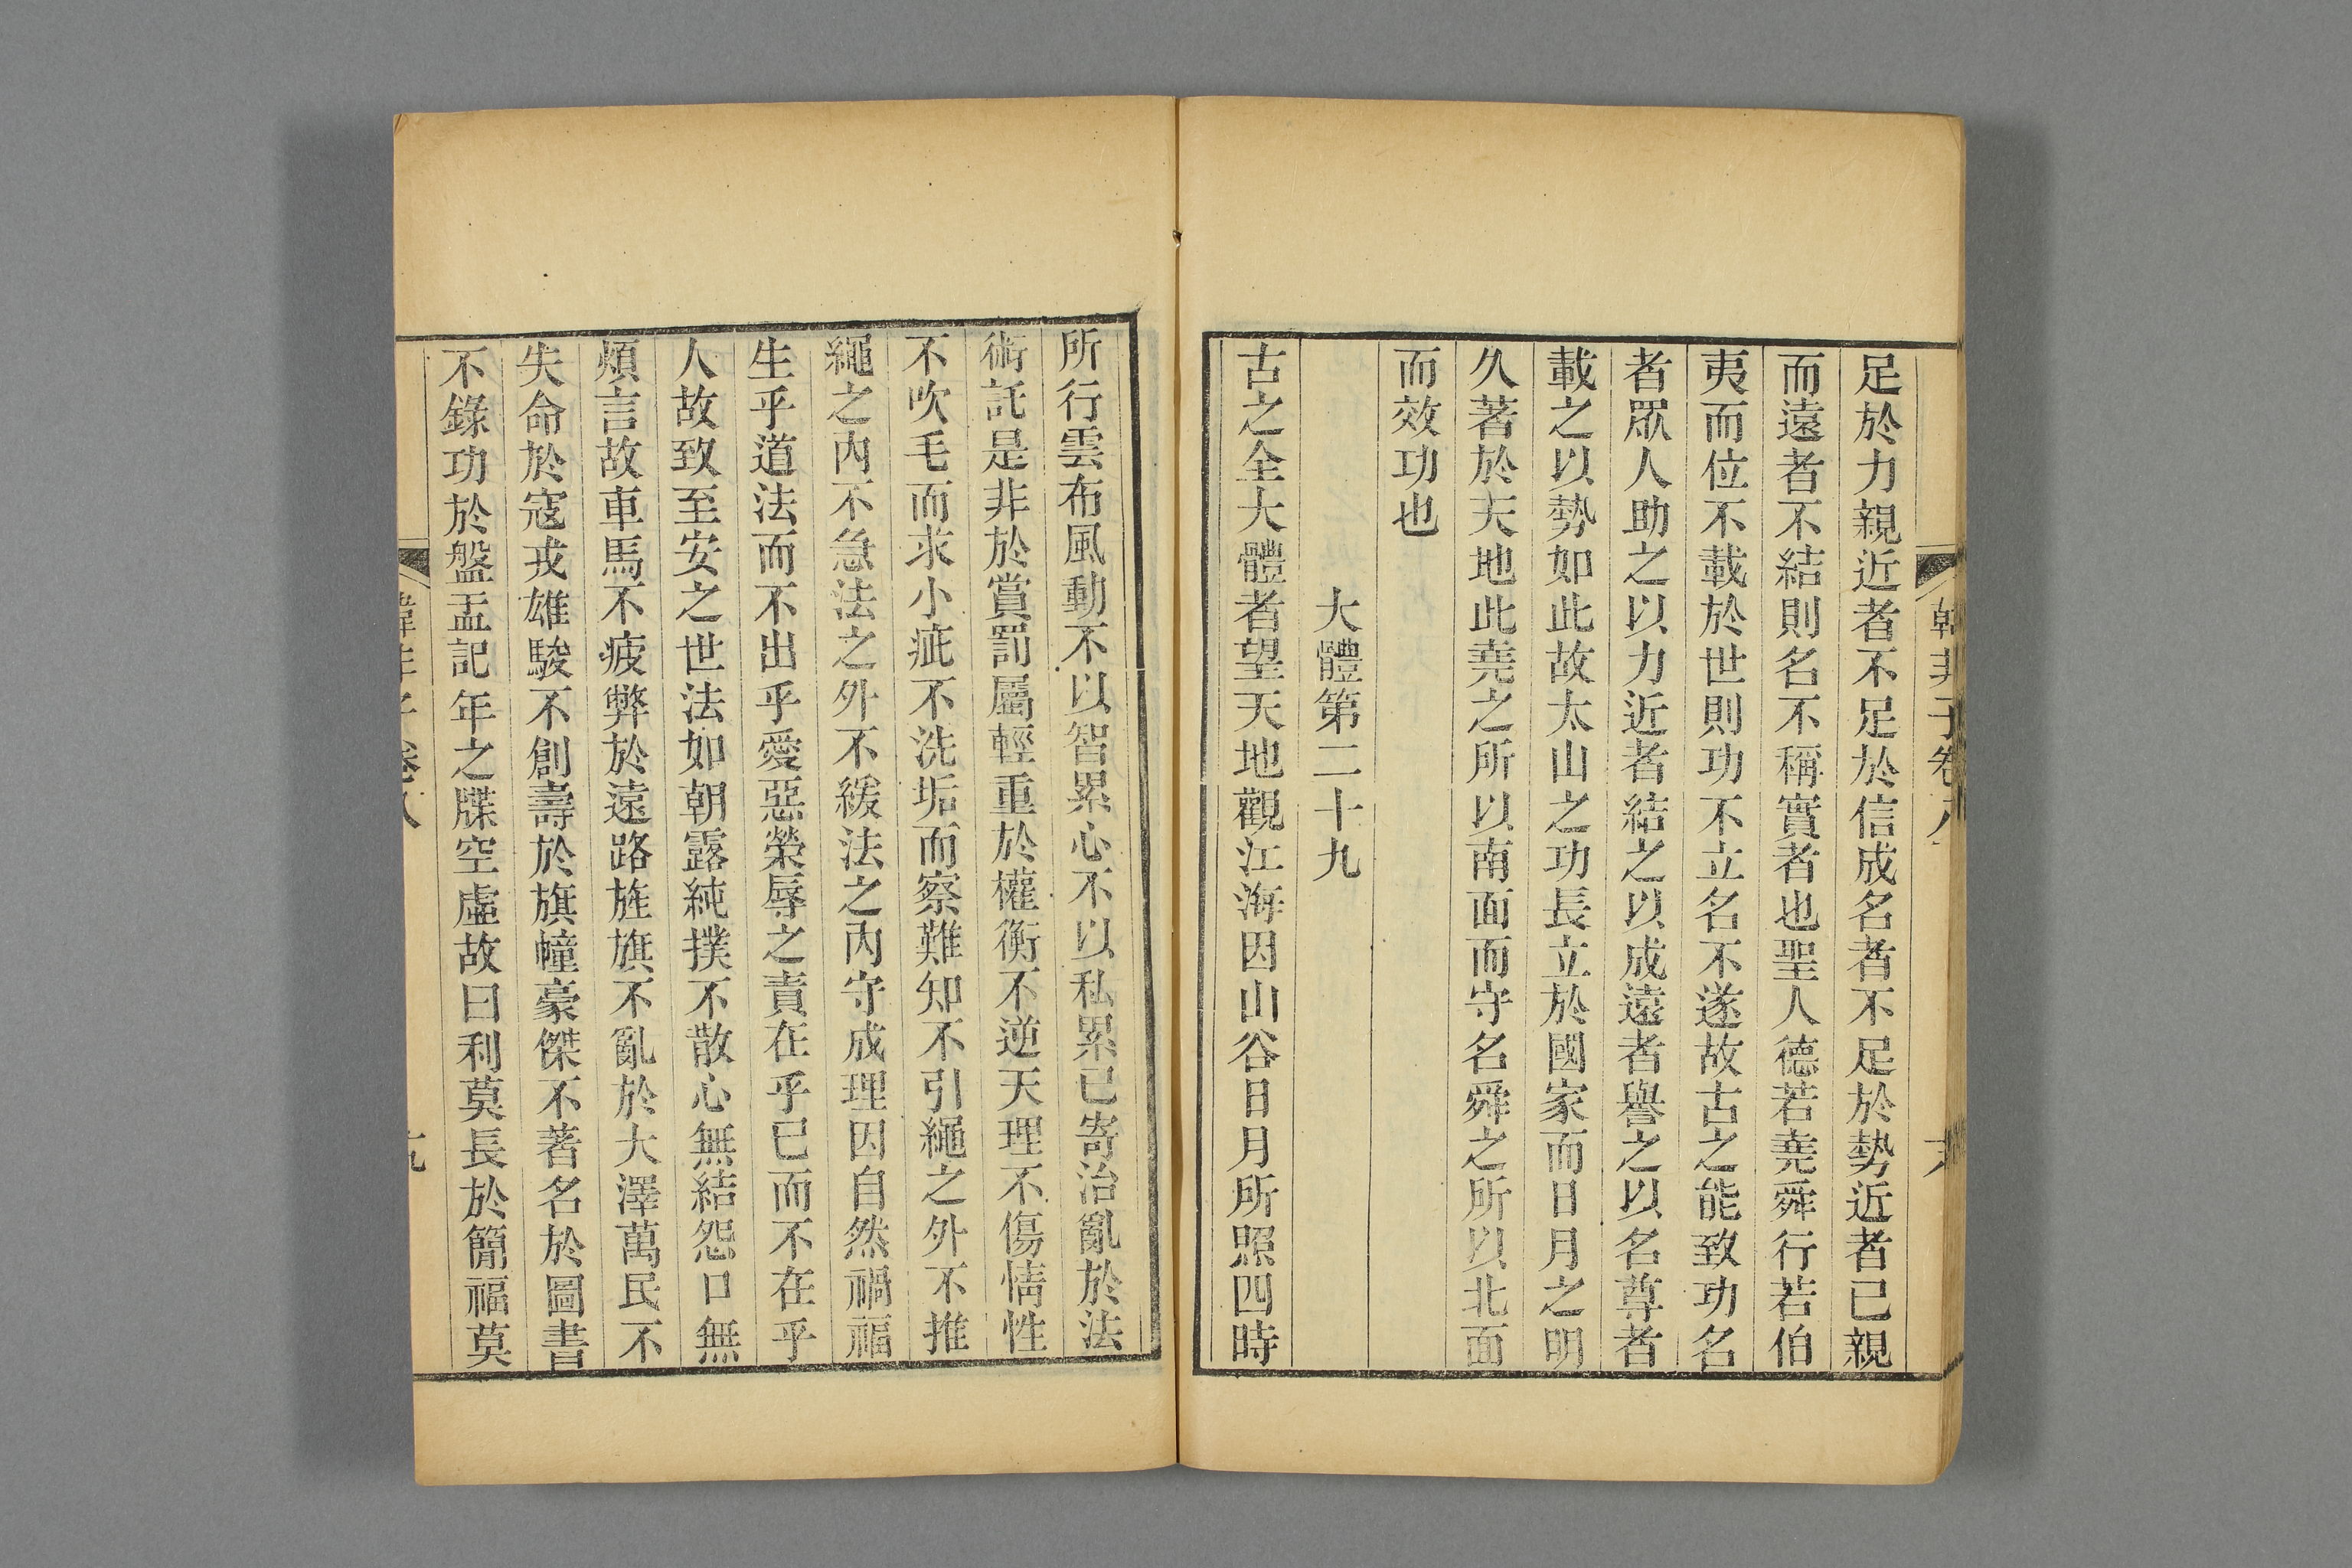 韓非子卷八
足於力親近者不足於信成名者不足於勢近者已親
而遠者不結則名不稱實者也聖人德若堯舜行若伯
夷而位不載於世則功不立名不遂故古之能致功名
者眾人助之以力近者結之以成遠者譽之以名尊者
載之以勢如此故太山之功長立於國家而日月之明
久著於天地此堯之所以南面而守名舜之所以北面
而效功也
大體第二十九
古之全大體者望天地觀江海因山谷日月所照四時
所行雲布風動不以智累心不以私累己寄治亂於法
術託是非於賞罰屬輕重於權衡不逆天理不傷情性
不吹毛而求小疵不洗垢而察難知不引繩之外不推
繩之內不急法之外不緩法之內守成理因自然禍福
生乎道法而不出乎愛惡榮辱之責在乎已而不在乎
人故致至安之世法如朝露純撲不散心無結怨口無
煩言故車馬不疲弊於遠路旌旗不亂於大澤萬民不
失命於寇戎雄駿不創壽於旗幢豪傑不著名於圖書
不錄功於盤盂記年之牒空虛故曰利莫長於簡福莫